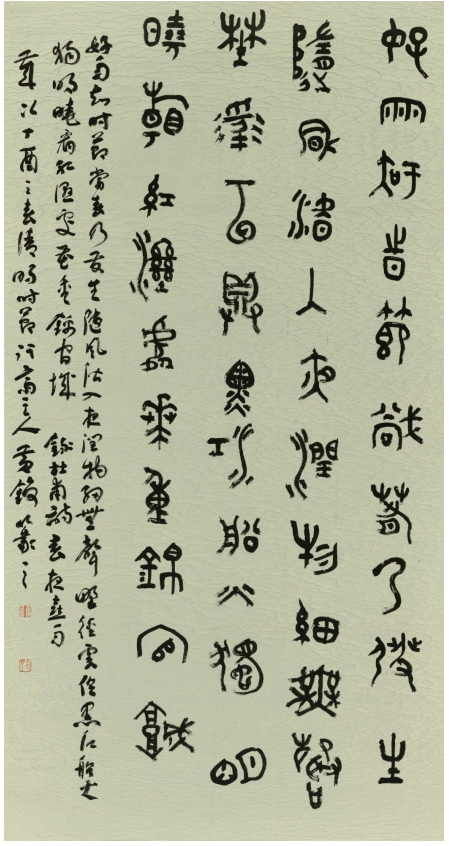 好雨知時節當春乃發生
隨風潛入夜潤物細無聲
野徑雲俱黑江船火獨明
曉看紅濕處花重錦官城
好雨知時節當春乃發生隨風潛入夜潤物細無聲野徑雲俱黑江船火
獨明曉看紅濕處花重錦官城 錄杜甫詩春夜喜雨
丁酉之春清明時節